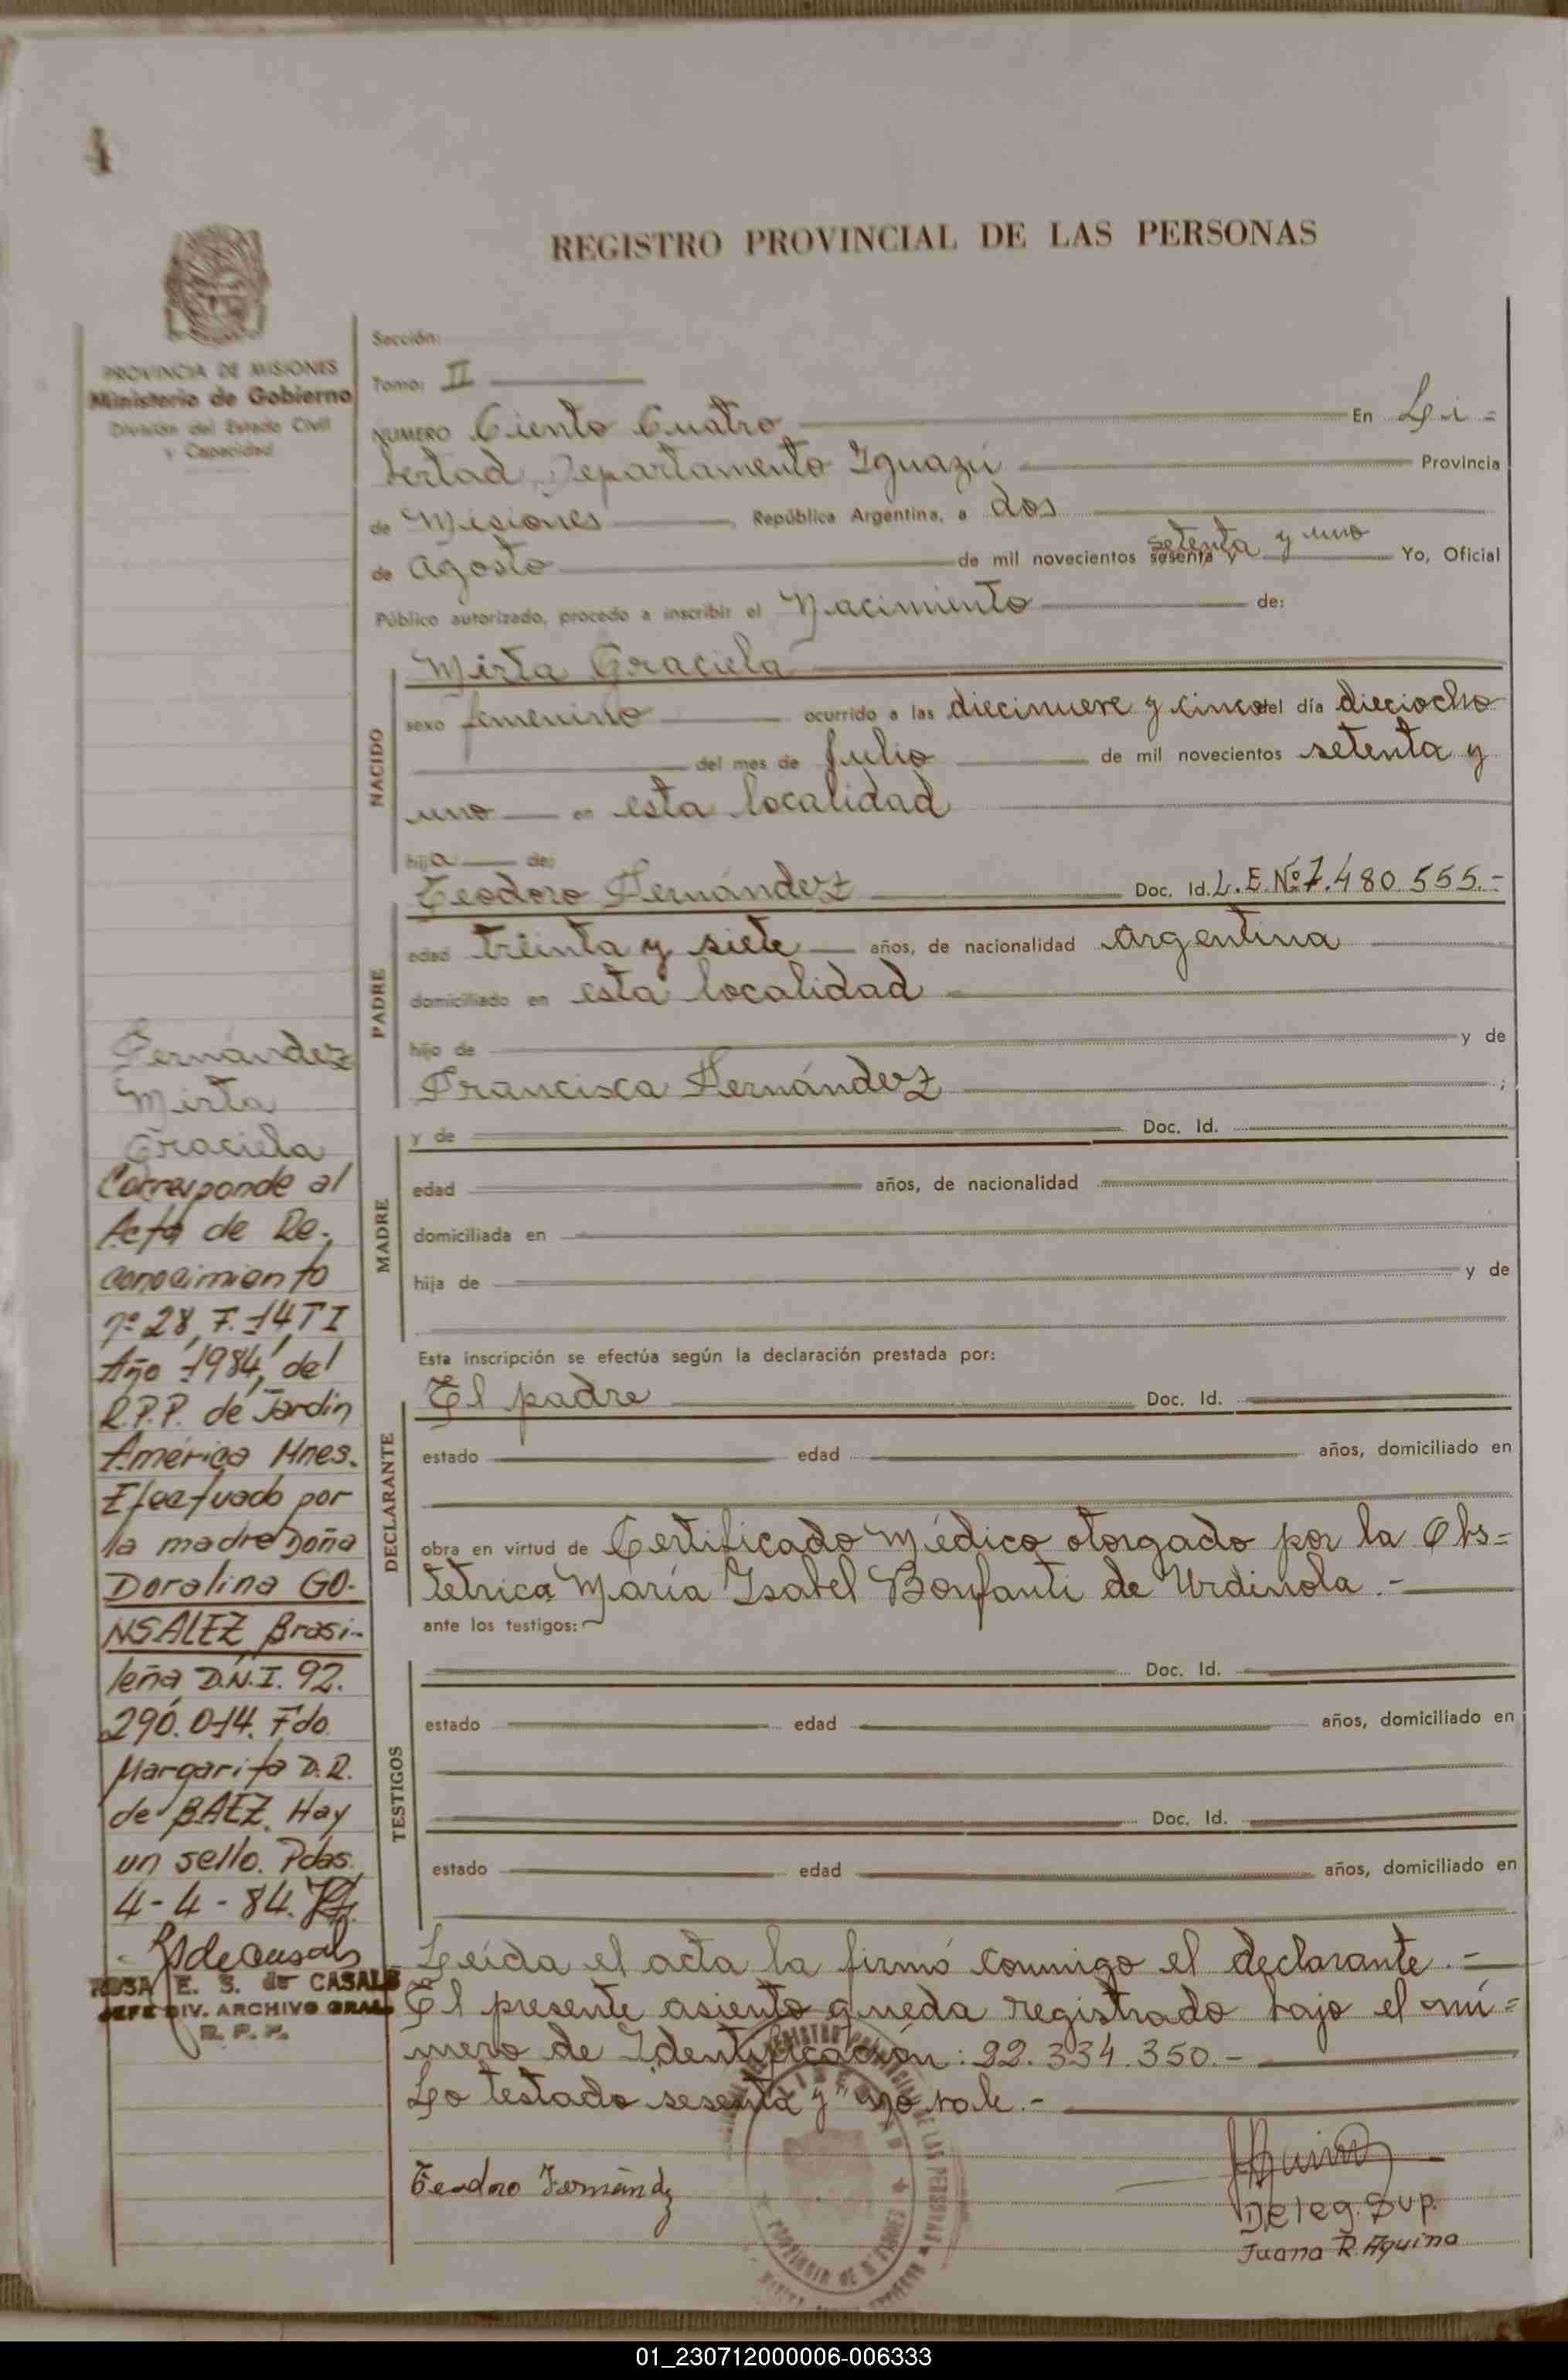 4
REGISTRO PROVINCIAL DE LAS PERSONAS
PROVINCIA DE MISIONES
Ministerio de Gobierno
División del Estado Civil
y Capacidad
Sección:
Tomo: II
NUMERO Ciento Cuatro En Li=
bertad, Departamento Iguazú Provincia
de Misiones, República Argentina, a dos
de Agosto de mil novecientos sesenta y setenta y uno Yo, Oficial
Público autorizado, procedo a inscribir el Nacimiento de:
NACIDO
Mirta Graciela
sexo femenino ocurrido a las diecinueve y cinco del día dieciocho
del mes de Julio de mil novecientos setenta y
uno en esta localidad
hija de:
PADRE
Teodoro Fernández Doc. Id. L.E. Nº 7.480.555.-
edad treinta y siete años, de nacionalidad Argentina
domiciliado en esta localidad
hijo de y de
Francisca Fernández ;
MADRE
y de Doc. Id.
edad años, de nacionalidad
domiciliada en
hija de y de
Esta inscripción se efectúa según la declaración prestada por:
DECLARANTE
El padre Doc. Id.
estado edad años, domiciliado en
obra en virtud de Certificado Médico otorgado por la Obs=
tetrica María Isabel Bonfanti de Urdinola.-
ante los testigos:
TESTIGOS
Doc. Id.
estado edad años, domiciliado en
Doc. Id.
estado edad años, domiciliado en
Leída el acta la firmó conmigo el declarante.=
El presente asiento queda registrado bajo el nú=
mero de Identificación: 22.334.350.-
Lo testado "sesenta y" no vale.-
Teodoro Fernández
Deleg. Sup.
Juana R. Aquino
Fernández
Mirta
Graciela
Corresponde al
Acta de Re-
conocimiento
nº 28, F. 14 T I
Año 1984, del
R.P.P. de Jardín
América Mnes.
Efectuado por
la madre Doña
Doralina GO-
NSALEZ, Brasi-
leña D.N.I. 92.
290.014. Fdo.
Margarita D.R.
de BAEZ. Hay
un sello. Pdas.
4-4-84.
ROSA E. S. de CASALS
JEFE DIV. ARCHIVO GRAL.
R. P. P.
01_230712000006-006333